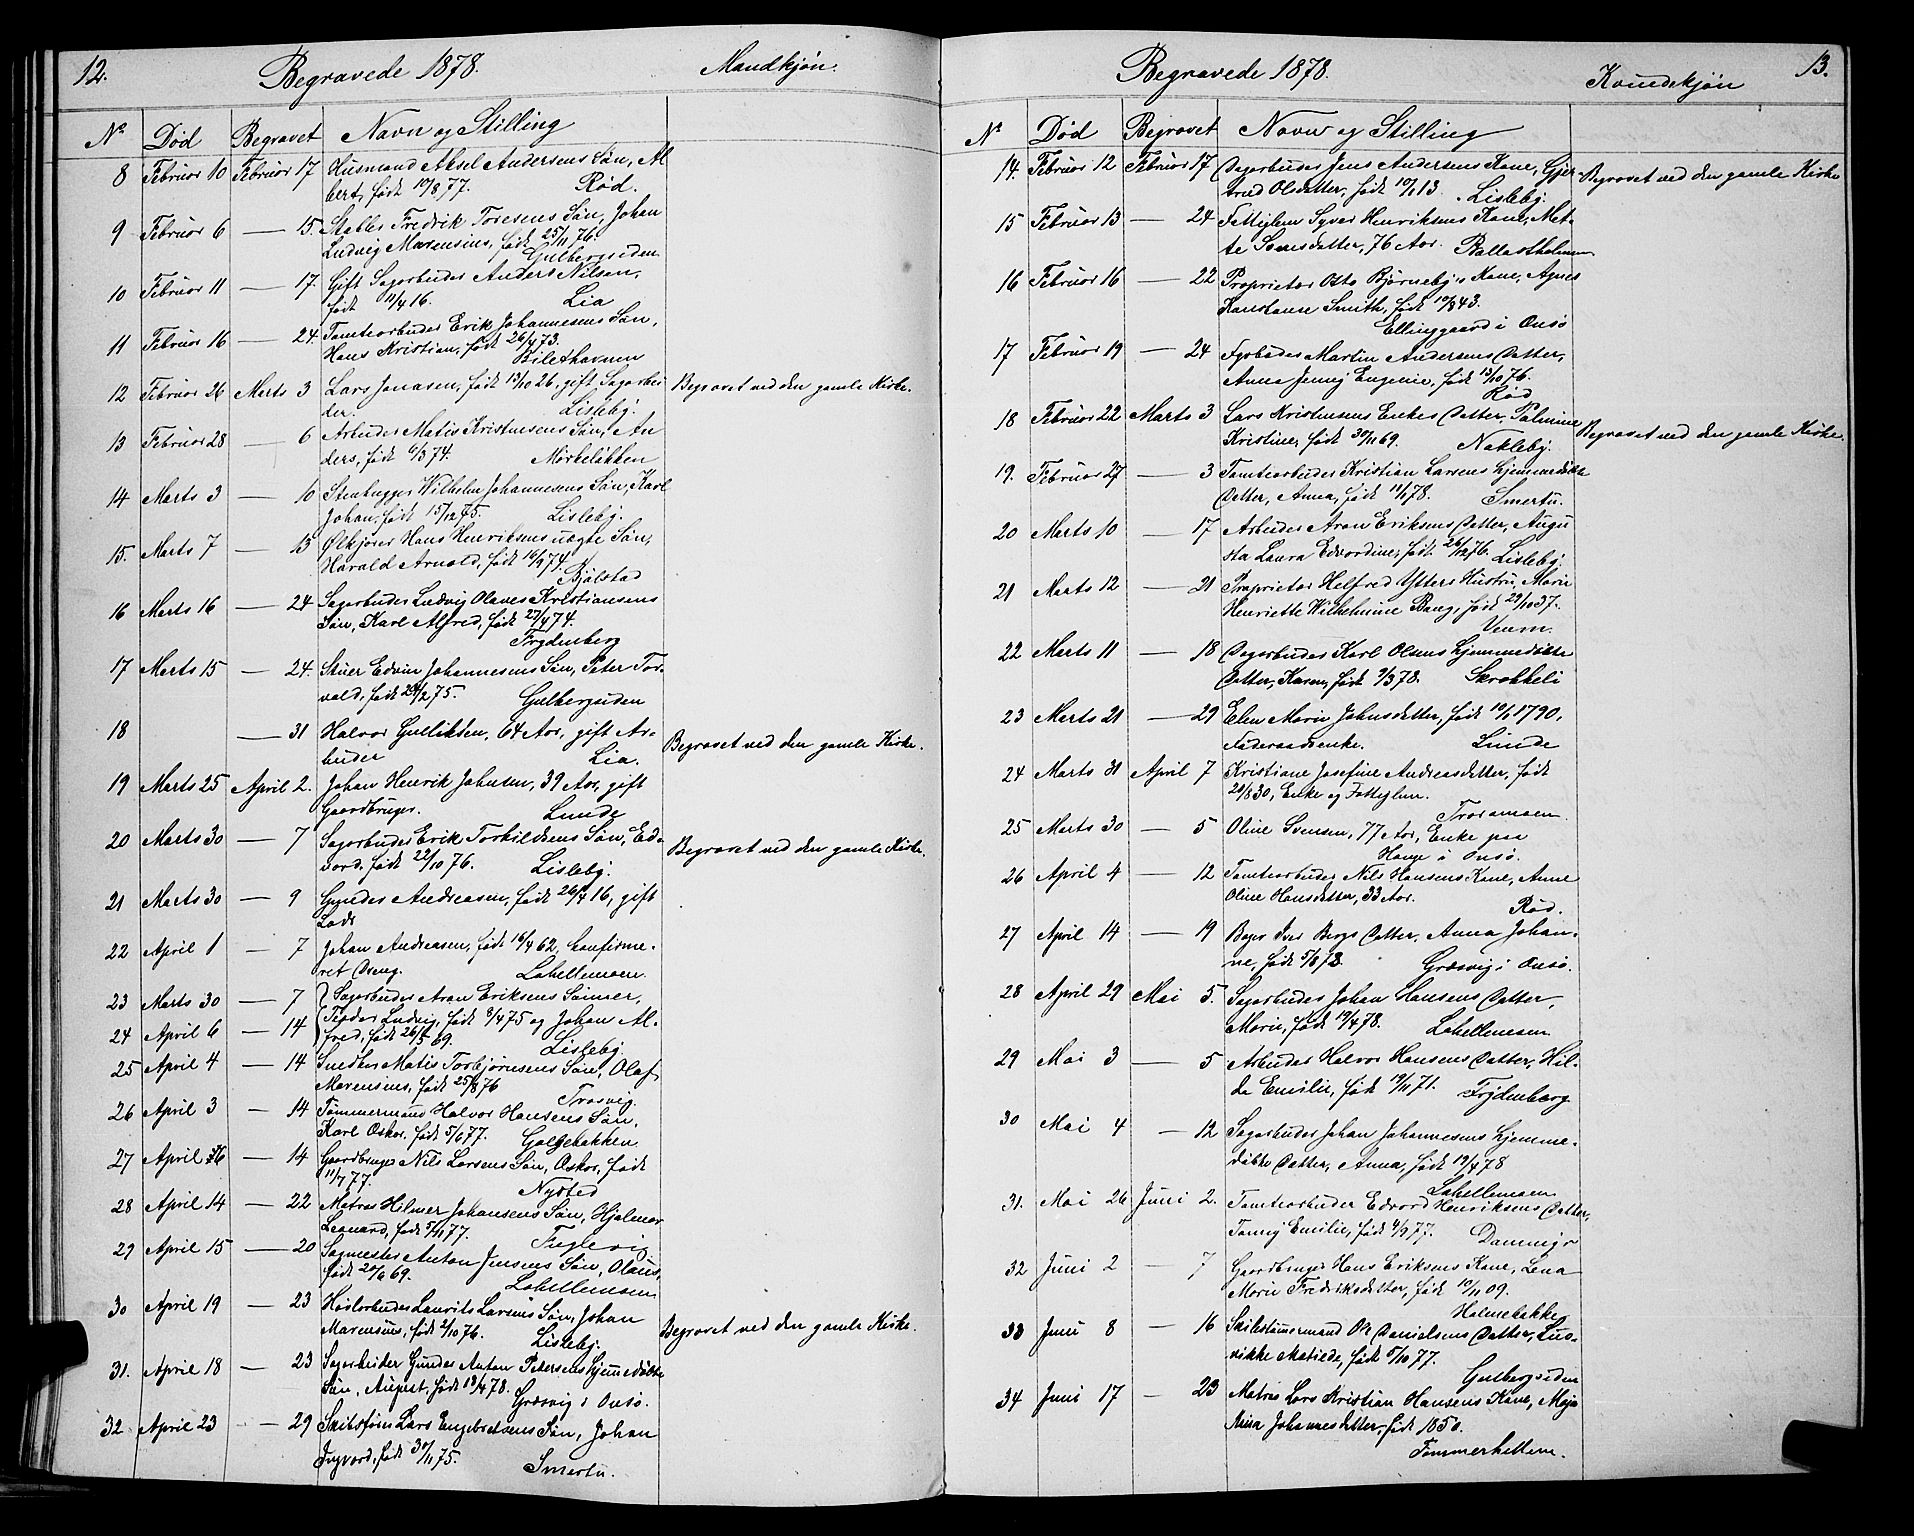 12.
Begravede 1878.
Mandkjøn.
No Død Begravet Navn og Stilling
8 Februar 10 Februar 17 Husmand Aksel Andersens Søn, Al
bert, født 10/8 77. Rød.
9 Februar 6 — 15. Stabler Fredrik Toresens Søn, Johan
Ludvig Marensius, født 25/11 76.
Gulbergsiden
10 Februar 11 — 17. Gift Sagarbeider Anders Nilsen,
født 11/4 16. Lia
11 Februar 16 — 24 Tomtearbeider Erik Johannesens Søn,
Hans Kristian, født 26/1 73.
12 Februar 26 Marts 3 Lars Jonasen, født 13/10 26, gift Sagarbei
der. Lisleby. Begravet ved den gamle Kirke.
13 Februar 28 — 6 Arbeider Matis Kristensens Søn, An
ders, født 6/3 74. Mørkeløkken
14 Marts 3 — 10 Stenhugger Wilhelm Johannesens Søn, Karl
Johan, født 15/12 75. Lisleby.
15. Marts 7 — 15 Ølkjører Hans Henriksens uægte Søn,
Harald Arnold, født 16/9 74.
Bjølstad
16 Marts 16 — 24 Sagarbeider Ludvig Olaves Kristiansens
Søn, Karl Alfred, født 27/4 74.
Frydenberg
17 Marts 15 — 24. Stuer Edvin Johannesens Søn, Peter Tor-
vald, født 24/2 75. Gulbergsiden
18 — 31 Halvor Gulliksen, 64 Aar, gift Ar-
beider Lia. Begravet ved den gamle Kirke.
19 Marts 25 April 2. Johan Henrik Johnsen, 39 Aar, gift
Gaardbruger. Lunde
20 Marts 30 — 7 Sagarbeider Erik Torkildsens Søn, Ed-
vard, født 22/10 76. Lisleby. Begravet ved den gamle Kirke.
21 Marts 30 — 9 Gunder Andreasen, født 26/4 16, gift
Lods
22 April 1 — 7 Johan Andreasen, født 16/4 62, konfirme-
ret Dreng. Labellemoen.
23 Marts 30 — 7 Sagarbeider Aron Eriksens Sønner,
24 April 6 — 14 Teodor Ludvig, født 8/4 75 og Johan Al-
fred, født 26/5 69. Lisleby
25 April 4 — 14 Snedker Matis Torbjørnsens Søn, Olaf
Marensius, født 25/8 76
Trosvig.
26 April 3 — 14 Tømmermand Halvor Hansens Søn,
Karl Oskar, født 5/6 77. Galgebakken
27 April 6 — 14 Gaardbruger Nils Larsens Søn, Oskar, født
11/7 77. Nysted
28 April 14 — 22 Matros Hilmer Johansens Søn, Hjalmar
Leonard, født 5/11 77. Fuglevig.
29 April 15 — 20 Sagmester Anton Jensens Søn, Olaus,
født 20/6 69. Labellemoen
30 April 19 — 23 Høvlarbeider Laurits Larsens Søn, Johan
Marensius, født 2/10 76. Lisleby. Begravet ved den gamle Kirke.
31. April 18 — 23 Sagarbeider Gunder Anton Petersens hjemmedøbte
Søn, August, født 13/4 78. Græsvig i Onsø.
32 April 23 — 29 Skibstøm Lars Engebretsens Søn, Johan
Ingvard, født 30/11 75. Smertu.
13.
Begravede 1878.
Kvindekjøn
No Død Begravet Navn og Stilling
14. Februar 12 Februar 17 Dagarbeider Jens Andersens Kone, Gjer-
trud Olsdatter, født 10/1 13. Lisleby. Begravet ved den gamle Kirke
15 Februar 13 — 24 Fattiglem Syver Henriksens Kone, Met-
te Sørensdatter, 76 Aar. Ballastholmen
16 Februar 16 — 22 Proprietær Otto Bjørneby's Kone, Agnes
Konstance Smith, født 10/8 43.
Ellinggaard i Onsø
17 Februar 19 — 24 Fyrbøder Martin Andersens Datter,
Anna Jenny Eugenie, født 13/10 76.
Rød
18 Februar 22 Marts 3 Lars Kristensens Enkes Datter, Palmine
Kristine, født 30/11 69. Nakleby. Begravet ved den gamle Kirke.
19. Februar 27 — 3 Tomtearbeider Kristian Larsens hjemmedøbte
Datter, Anna, født 11/1 78. Smertu.
20 Marts 10 — 17 Arbeider Aron Eriksens Datter, Augu
sta Laura Edvardine, født 26/12 76. Lisleby.
21 Marts 12 — 21 Proprietær Helfred Ytters Hustru, Marie
Henriette Wilhelmine Bange, født 29/10 37.
Veum.
22 Marts 11 — 18 Dagarbeider Karl Olsens hjemmedøbte
Datter, Karen, født 9/3 78. Skrakkeli
23 Marts 21 — 29 Elen Marie Johnsdatter, født 10/1 1790,
Føderaadsenke. Lunde
24 Marts 31 April 7 Kristiane Josefine Andreasdatter, født
20/8 30, Enke og Fattiglem.
25 Marts 30 — 5 Oline Svensen, 77 Aar, Enke paa
Hauge i Onsø.
26 April 4 — 12 Tomtearbeider Nils Hansens Kone, Anne
Oline Hansdatter, 33 Aar.
Rød.
27 April 14 — 19 Bager Iver Bergs Datter, Anna Johan-
ne, født 5/8 72. Græsvig i Onsø.
28 April 29 Mai 5. Sagarbeider Johan Hansens Datter,
Marie, født 19/4 78. Labellemoen
29 Mai 3 — 5 Arbeider Halvor Hansens Datter, Hil-
da Emilie, født 19/11 71. Frydenberg
30 Mai 4 — 12 Sagarbeider Johan Johannesens hjemme-
døbte Datter, Anna, født 19/4 78
Labellemoen
31. Mai 26 Juni 2. Tomtearbeider Edvard Henriksens Datter,
Fanny Emilie, født 4/9 77. Dammyr
32 Juni 2 — 7 Gaardbruger Hans Eriksens Kone, Lena
Marie Fredriksdatter, født 10/11 09.
Holmebakke
33 Juni 8 — 16 Skibstømermand Ole Danielsens Datter, Lud-
vikke Matilde, født 5/10 77.
Gulbergsiden
34 Juni 17 — 23 Matros Lars Kristian Hansens Kone, Maja
Mina Johannesdatter, født 1850.
Tømmerheltene.